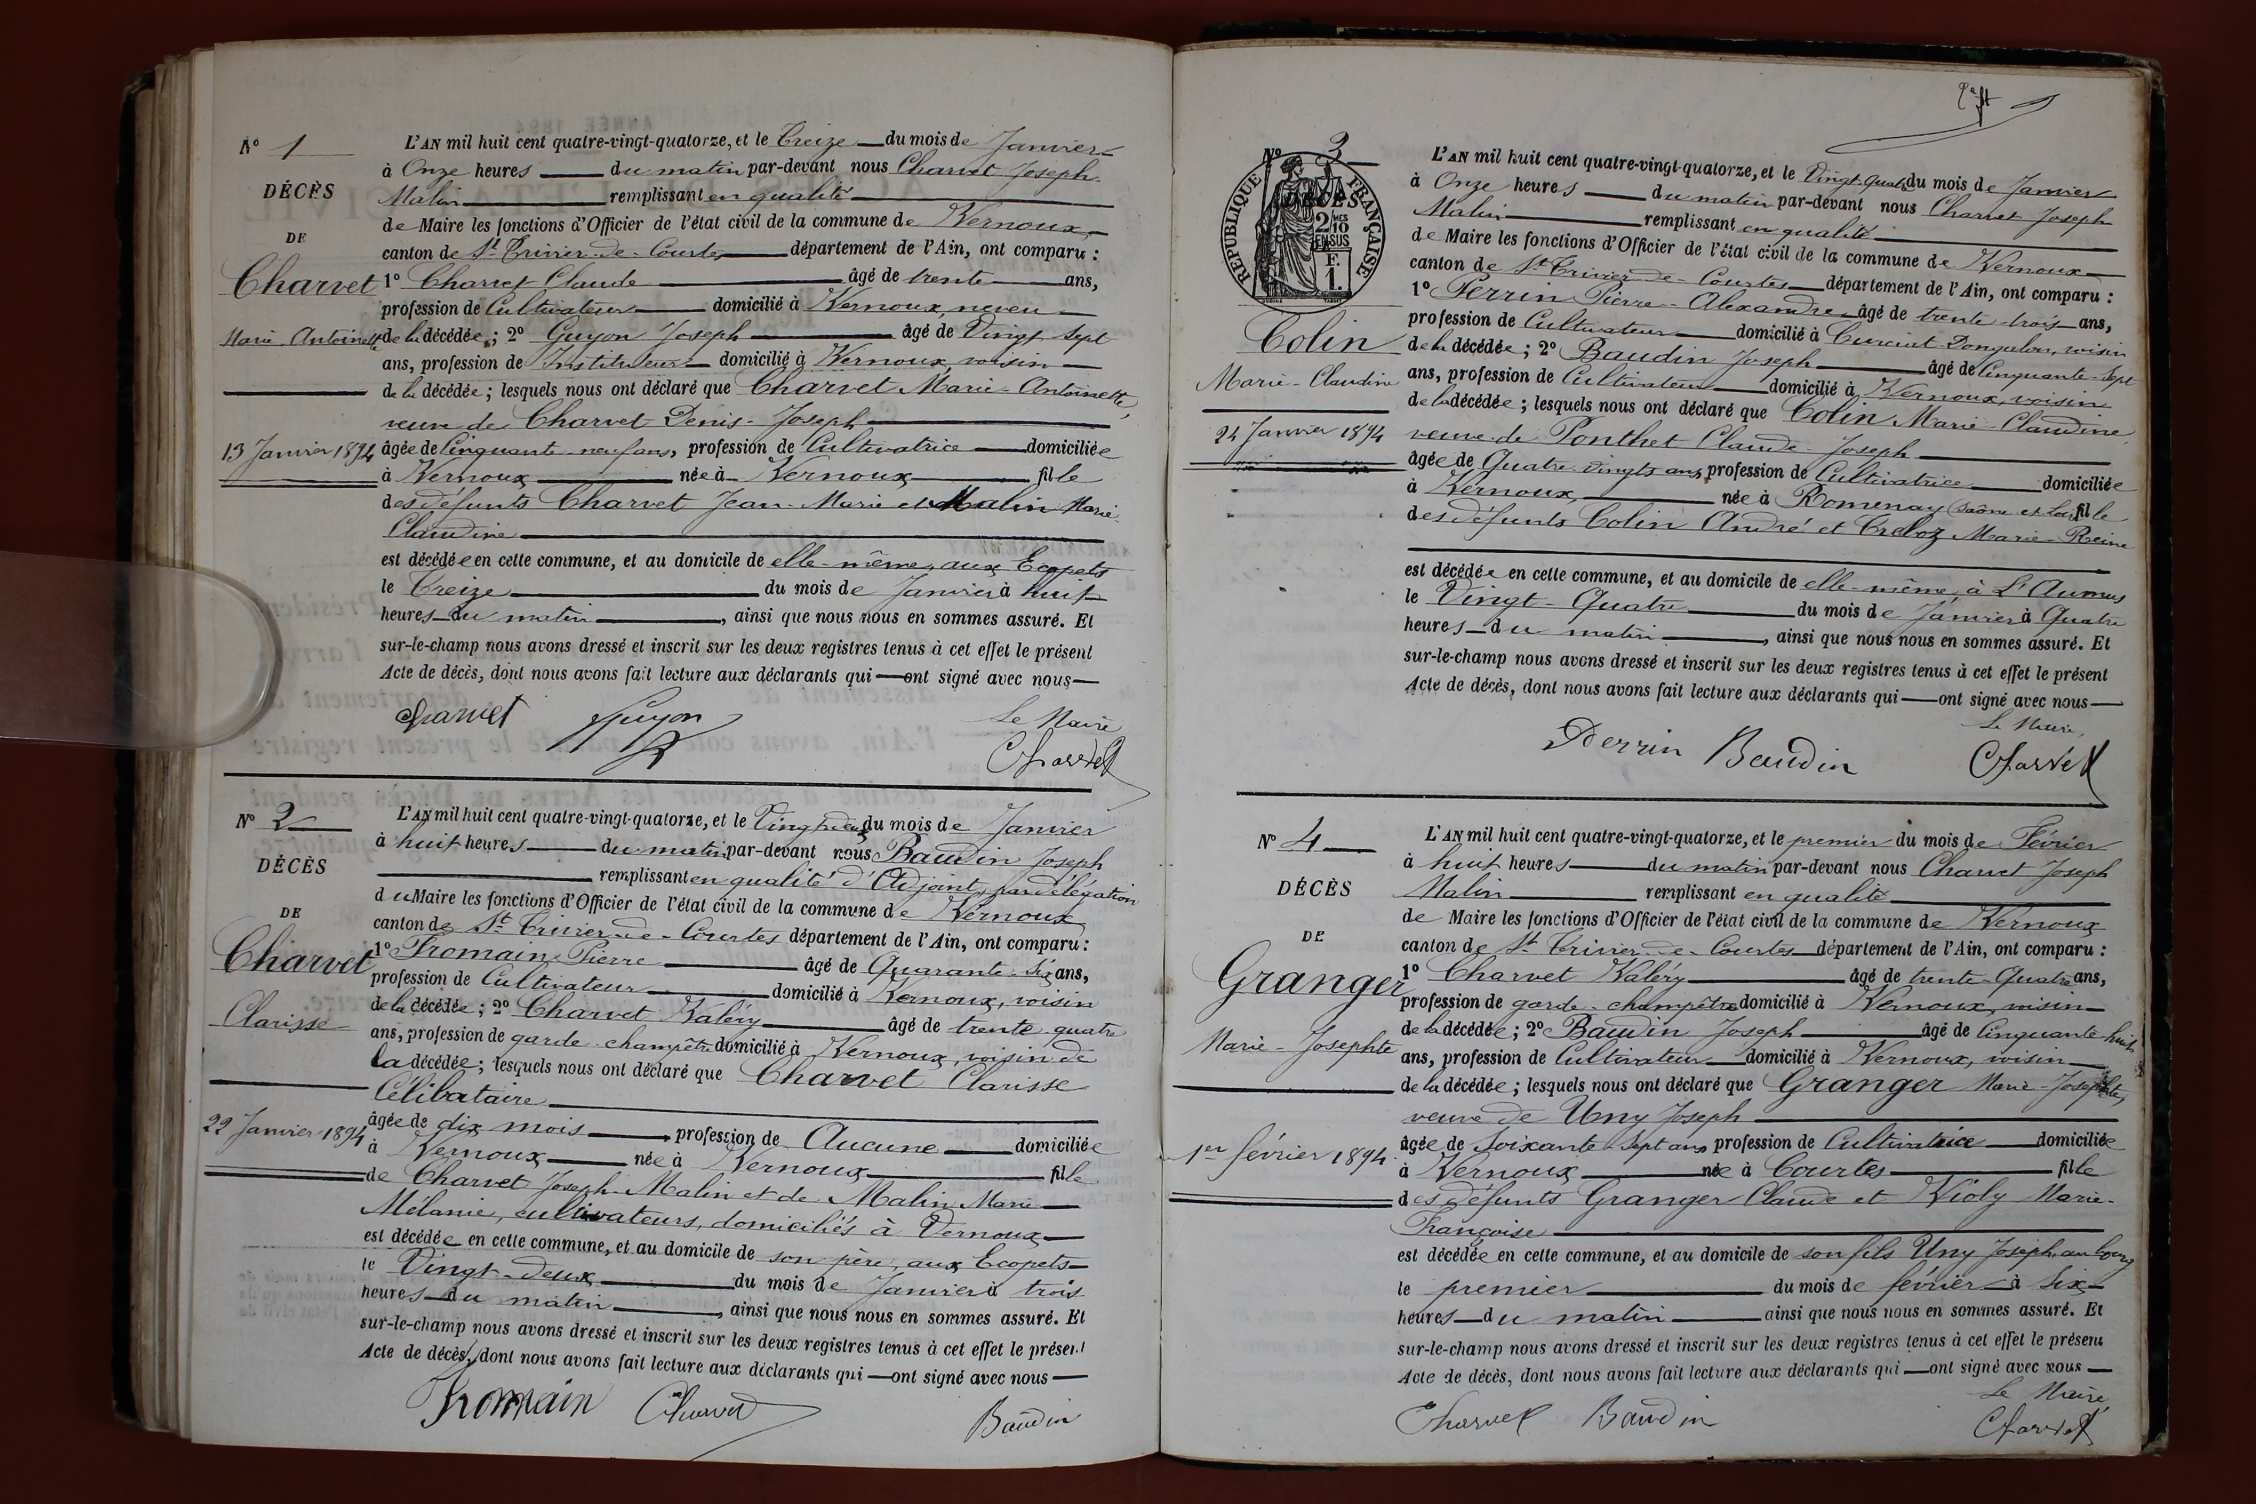 N° 1
DÉCÈS
DE
Charvet
Marie-Antoinette
13 Janvier 1894
L'AN mil huit cent quatre-vingt-quatorze, et le Treize du mois de Janvier
à Onze heures du matin par-devant nous Charvet Joseph
Malin remplissant en qualité
de Maire les fonctions d'Officier de l'état civil de la commune de Vernoux,
canton de St Trivier-de-Courtes département de l'Ain, ont comparu :
1° Charvet Claude âgé de trente ans,
profession de Cultivateur domicilié à Vernoux, neveu
de la décédée ; 2° Guyon Joseph âgé de Vingt sept
ans, profession de Instituteur domicilié à Vernoux, voisin
de la décédée ; lesquels nous ont déclaré que Charvet Marie-Antoinette,
veuve de Charvet Denis-Joseph
âgée de Cinquante-neuf ans, profession de Cultivatrice domiciliée
à Vernoux née à Vernoux fille
des défunts Charvet Jean-Marie et Malin Marie-
Claudine
est décédée en cette commune, et au domicile de elle-même, aux Ecopets
le Treize du mois de Janvier à huit
heures du matin, ainsi que nous nous en sommes assuré. Et
sur-le-champ nous avons dressé et inscrit sur les deux registres tenus à cet effet le présent
Acte de décès, dont nous avons fait lecture aux déclarants qui ont signé avec nous
Le Maire
Charvet Guyon Charvet
N° 2
DÉCÈS
DE
Charvet
Clarisse
22 Janvier 1894
L'AN mil huit cent quatre-vingt-quatorze, et le Vingt-deux du mois de Janvier
à huit heures du matin par-devant nous Baudin Joseph
remplissant en qualité d'Adjoint, par délégation
du Maire les fonctions d'Officier de l'état civil de la commune de Vernoux
canton de St Trivier-de-Courtes département de l'Ain, ont comparu :
1° Fromain Pierre âgé de Quarante-Six ans,
profession de Cultivateur domicilié à Vernoux, voisin
de la décédée ; 2° Charvet Valéry âgé de trente-quatre
ans, profession de garde-champêtre domicilié à Vernoux, voisin de
la décédée ; lesquels nous ont déclaré que Charvet Clarisse
Célibataire
âgée de dix mois profession de Aucune domiciliée
à Vernoux née à Vernoux fille
de Charvet Joseph-Malin et de Malin Marie-
Mélanie, cultivateurs, domiciliés à Vernoux
est décédée en cette commune, et au domicile de son père, aux Ecopets
le Vingt-deux du mois de Janvier à trois
heures du matin, ainsi que nous nous en sommes assuré. Et
sur-le-champ nous avons dressé et inscrit sur les deux registres tenus à cet effet le présent
Acte de décès, dont nous avons fait lecture aux déclarants qui ont signé avec nous
Fromain Charvet Baudin
N° 3
DÉCÈS
RÉPUBLIQUE FRANÇAISE
2/10 MES
EN SUS
F.
1.
Colin
Marie-Claudine
24 Janvier 1894
L'AN mil huit cent quatre-vingt-quatorze, et le Vingt-quatre du mois de Janvier
à Onze heures du matin par-devant nous Charvet Joseph
Malin remplissant en qualité
de Maire les fonctions d'Officier de l'état civil de la commune de Vernoux
canton de St Trivier-de-Courtes département de l'Ain, ont comparu :
1° Perrin Pierre-Alexandre âgé de trente-trois ans,
profession de Cultivateur domicilié à Curciat-Dongalon, voisin
de la décédée ; 2° Baudin Joseph âgé de Cinquante-Sept
ans, profession de Cultivateur domicilié à Vernoux, voisin
de la décédée ; lesquels nous ont déclaré que Colin Marie-Claudine,
veuve de Ponthet Claude-Joseph
âgée de Quatre-vingts ans, profession de Cultivatrice domiciliée
à Vernoux, née à Romenay (Saône et Loire) fille
des défunts Colin André et Creloz Marie-Reine
est décédée en cette commune, et au domicile de elle-même, à L'Aumus
le Vingt-Quatre du mois de Janvier à Quatre
heures du matin, ainsi que nous nous en sommes assuré. Et
sur-le-champ nous avons dressé et inscrit sur les deux registres tenus à cet effet le présent
Acte de décès, dont nous avons fait lecture aux déclarants qui ont signé avec nous
Le Maire,
Perrin Baudin Charvet
N° 4
DÉCÈS
DE
Granger
Marie-Josephte
1er février 1894
L'AN mil huit cent quatre-vingt-quatorze, et le premier du mois de Février
à huit heures du matin par-devant nous Charvet Joseph
Malin remplissant en qualité
de Maire les fonctions d'Officier de l'état civil de la commune de Vernoux
canton de St Trivier-de-Courtes département de l'Ain, ont comparu :
1° Charvet Valéry âgé de trente-Quatre ans,
profession de garde-champêtre domicilié à Vernoux, voisin
de la décédée ; 2° Baudin Joseph âgé de Cinquante-huit
ans, profession de Cultivateur domicilié à Vernoux, voisin
de la décédée ; lesquels nous ont déclaré que Granger Marie-Josephte,
veuve de Uny Joseph
âgée de Soixante-Sept ans, profession de Cultivatrice domiciliée
à Vernoux née à Courtes fille
des défunts Granger Claude et Violy Marie-
Françoise
est décédée en cette commune, et au domicile de son fils Uny Joseph, au bourg
le premier du mois de février à Six
heures du matin ainsi que nous nous en sommes assuré. Et
sur-le-champ nous avons dressé et inscrit sur les deux registres tenus à cet effet le présent
Acte de décès, dont nous avons fait lecture aux déclarants qui ont signé avec nous
Le Maire,
Charvet Baudin Charvet